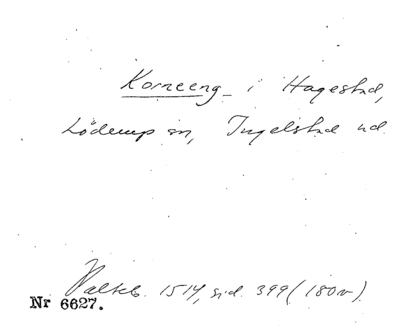 Korneeng i Hagestad,
Löderup sn, Ingelstad hd
Palteb. 1514, sid. 399 (180v).
Nr 6627.